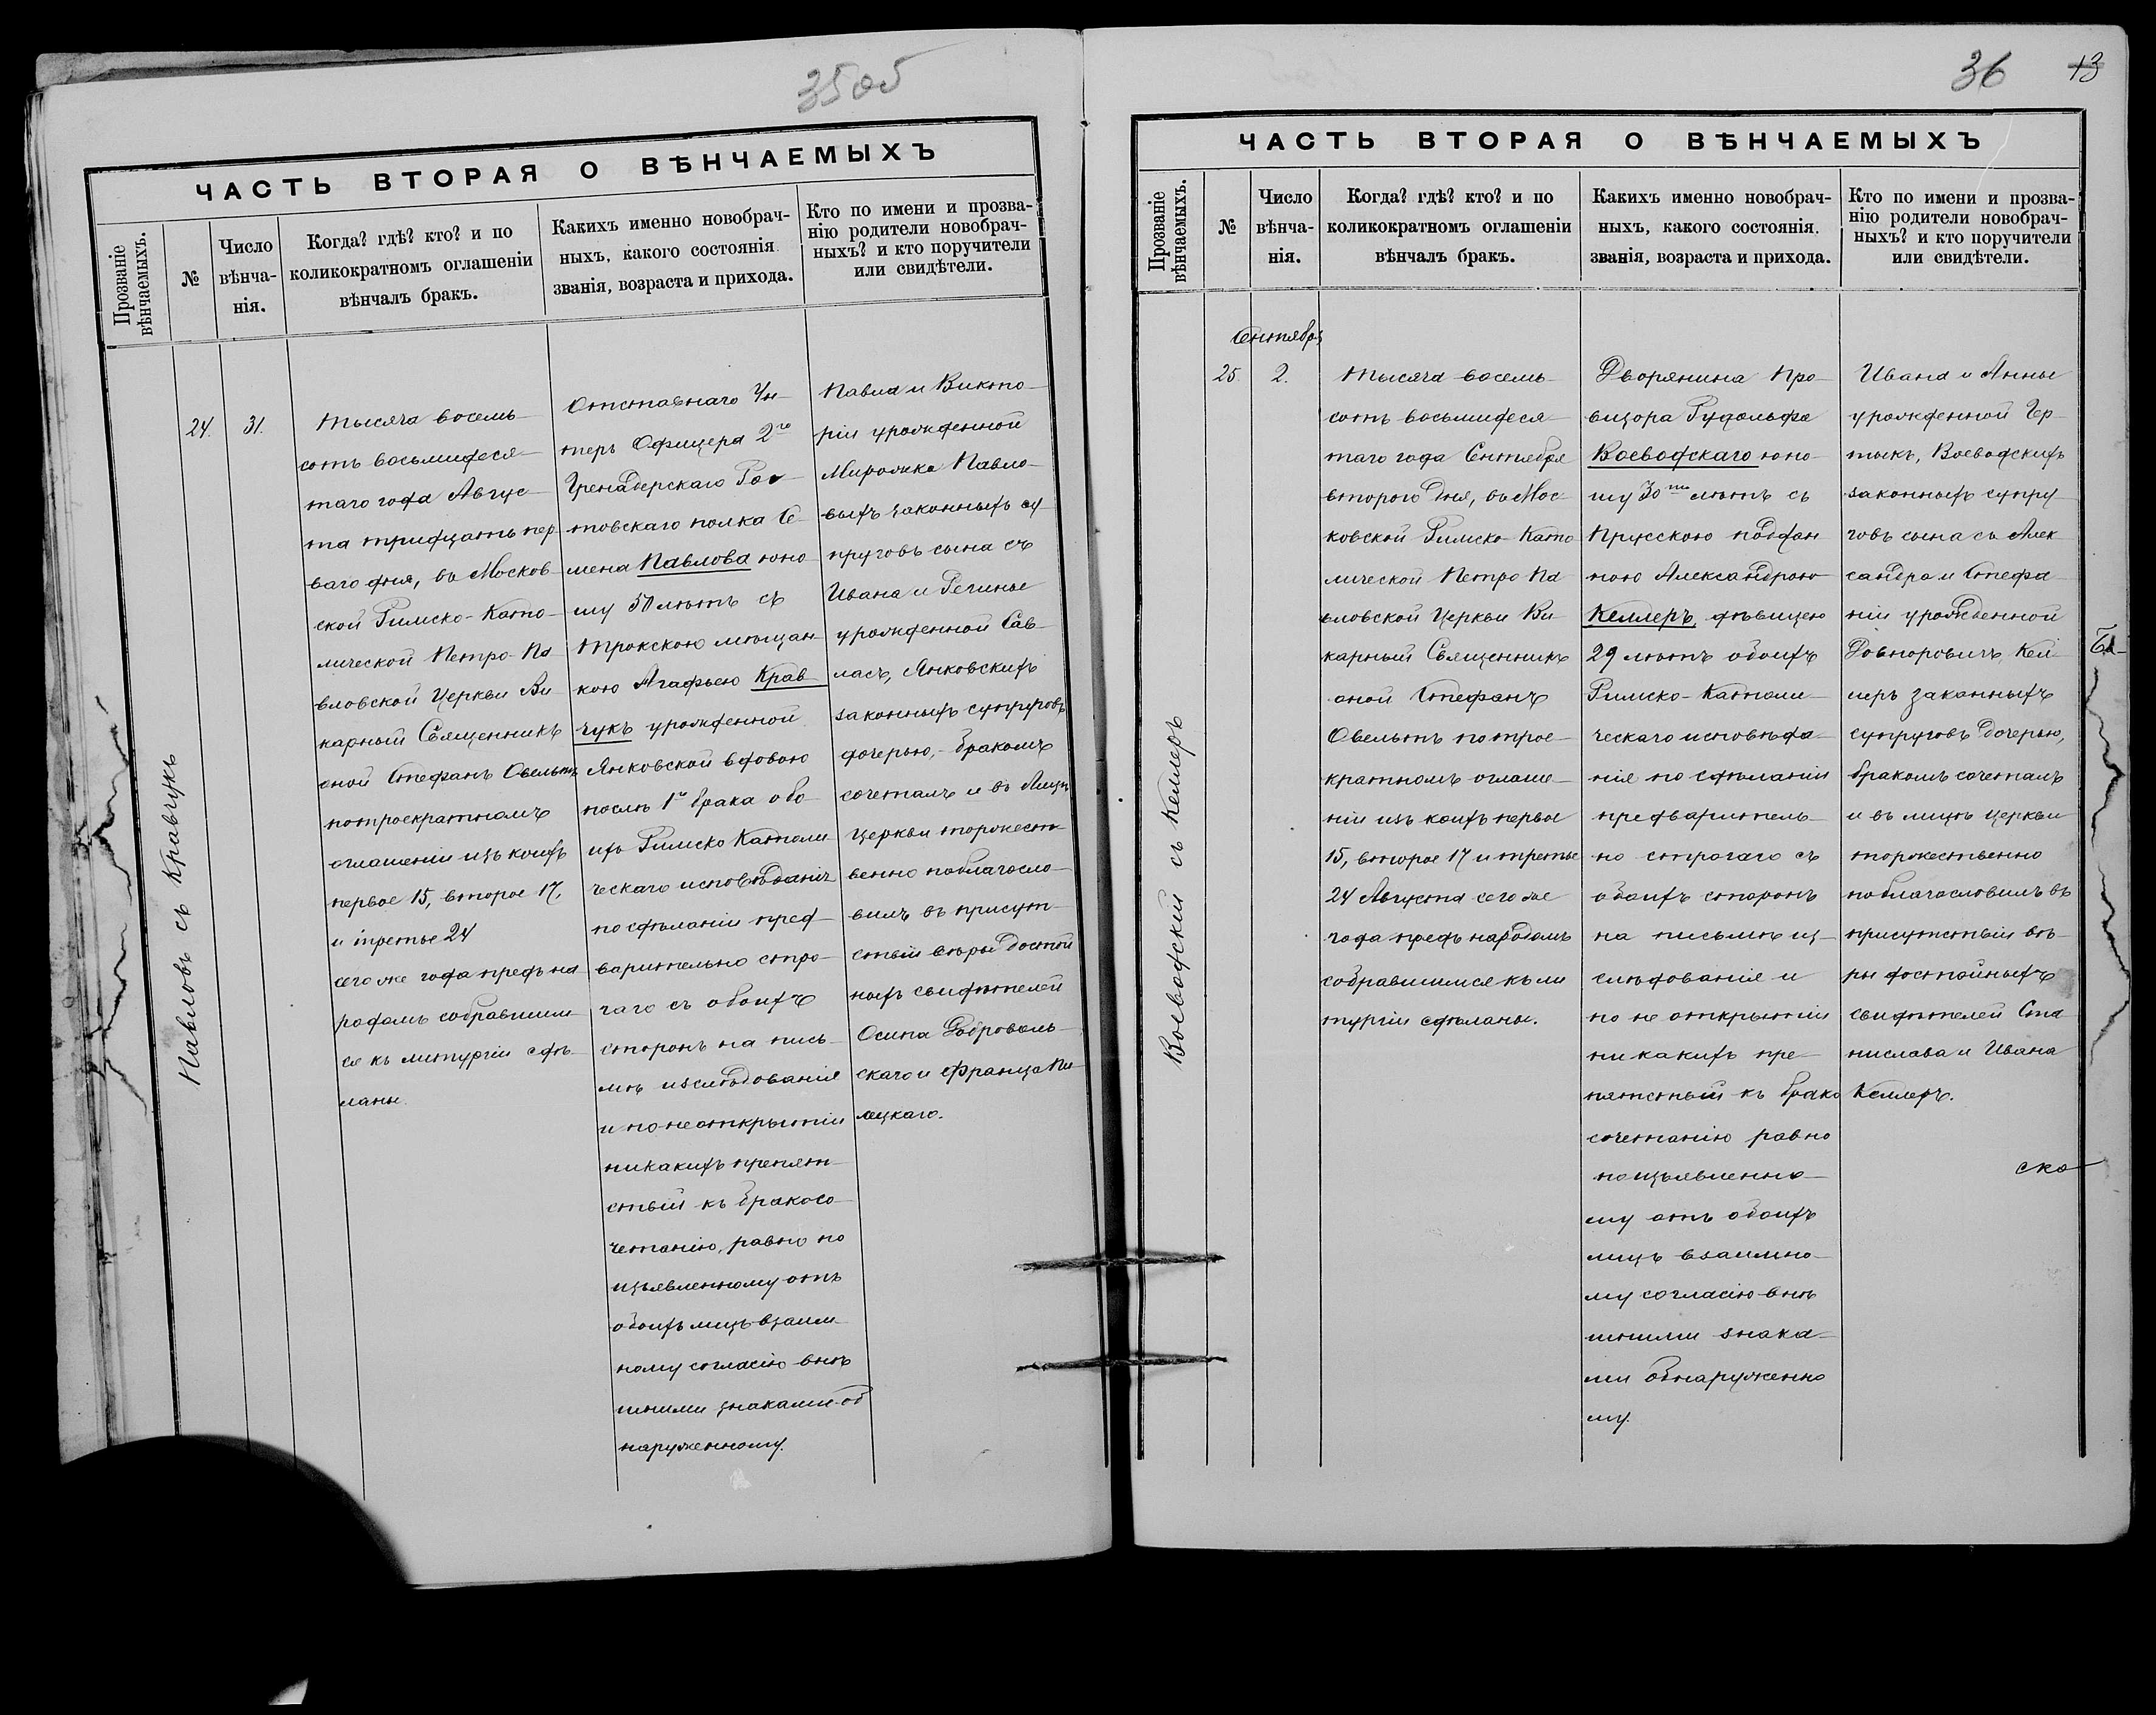 35об
ЧАСТЬ ВТОРАЯ О ВѢНЧАЕМЫХЪ
Прозваніе
вѣнчаемыхъ.
№
Число
вѣнча-
нія.
Когда? гдѣ? кто? и по
коликократномъ оглашеніи
вѣнчалъ бракъ.
Какихъ именно новобрач-
ныхъ, какого состоянія
званія, возраста и прихода.
Кто по имени и прозва-
нію родители новобрач-
ныхъ? и кто поручители
или свидѣтели.
Павловъ съ Кравчукъ
24.
31.
Тысяча восемь
сотъ восьмидеся-
таго года Авгус-
та тридцать пер
ваго дня, въ Москов-
ской Римско-Като-
лической Петро-Па
вловской Церкви Ви
карный Священникъ
оной Стефанъ Овельтъ
потроекратномъ
оглашеніи изъ коихъ
первое 15, второе 17,
и третье 24
сего же года предъ на
родомъ собравшим
ся къ литургіи сдѣ-
ланы.
Отставнаго Ун-
теръ Офицера 2го
Гренадерскаго Рос
товскаго полка Се-
мена Павлова юно-
шу 50 лѣтъ съ
Трокскою мѣщан-
кою Агафьею Крав-
чукъ урожденной
Янковской вдовою
послѣ 1го брака обо-
ихъ Римско Католи
ческаго исповѣданія
по сдѣланіи пред-
варительно стро-
гаго съ обоихъ
сторонъ на пись-
мѣ изслѣдованія
и по не открытіи
никакихъ препят-
ствій къ бракосо-
четанію, равно по
изъявленному отъ
обоихъ лицъ взаим-
ному согласію внѣ
шними знаками об
наруженному.
Павла и Викто-
ріи урожденной
Мирошко Павло-
выхъ законныхъ су-
пруговъ сына съ
Ивана и Регины
урожденной Сав-
ласъ, Янковскихъ
законныхъ супруговъ
дочерью,- бракомъ
сочеталъ и въ лицѣ
Церкви торжест-
венно поблагосло-
вилъ въ присут-
ствіи вѣры достой
ныхъ свидѣтелей
Осипа Доброволь-
скаго и Франца Пи
лецкаго.
36
13
ЧАСТЬ ВТОРАЯ О ВѢНЧАЕМЫХЪ
Прозваніе
вѣнчаемыхъ.
№
Число
вѣнча-
нія.
Когда? гдѣ? кто? и по
коликократномъ оглашеніи
вѣнчалъ бракъ.
Какихъ именно новобрач-
ныхъ, какого состоянія.
званія, возраста и прихода.
Кто по имени и прозва-
нію родители новобрач-
ныхъ? и кто поручители
или свидѣтели.
Воеводскій съ Келлеръ
Сентябрь
25.
2.
Тысяча восемь
сотъ восьмидеся-
таго года Сентября
второго дня, въ Мос-
ковской Римско-Като
лической Петро Па
вловской Церкви Ви-
карный Священникъ
оной Стефанъ
Овельтъ по трое-
кратномъ оглаше-
ніи изъ коихъ первое
15, второе 17 и третье
24 Августа сего же
года предъ народомъ
собравшимся къ ли
тургіи сдѣланы.
Дворянина Про-
визора Рудольфа
Воеводскаго юно-
шу 30ти лѣтъ съ
Прусскою поддан
ною Александрою
Келлеръ, дѣвицею
29 лѣтъ обоихъ
Римско-Католи-
ческаго исповѣда-
нія по сдѣланіи
предваритель-
но строгаго съ
обоихъ сторонъ
на письмѣ из-
слѣдованія и
по не открытіи
никакихъ пре-
пятствій къ брако
сочетанію равно
по изъявленно-
му отъ обоихъ
лицъ взаимно-
му согласію внѣ
шними знака-
ми обнаруженно
му.
Ивана и Анны
урожденной Гер-
тыкъ, Воеводскихъ
законныхъ супру
говъ сына съ Алек
сандра и Стефа-
ніи урожденной
Довнаровичъ Кел-
леръ законныхъ
супруговъ дочерью,
бракомъ сочеталъ
и въ лицѣ Церкви
торжественно
поблагословилъ въ
присутствіи вѣ-
ры достойныхъ
свидѣтелей Ста-
нислава и Ивана
Келлеръ.
ско